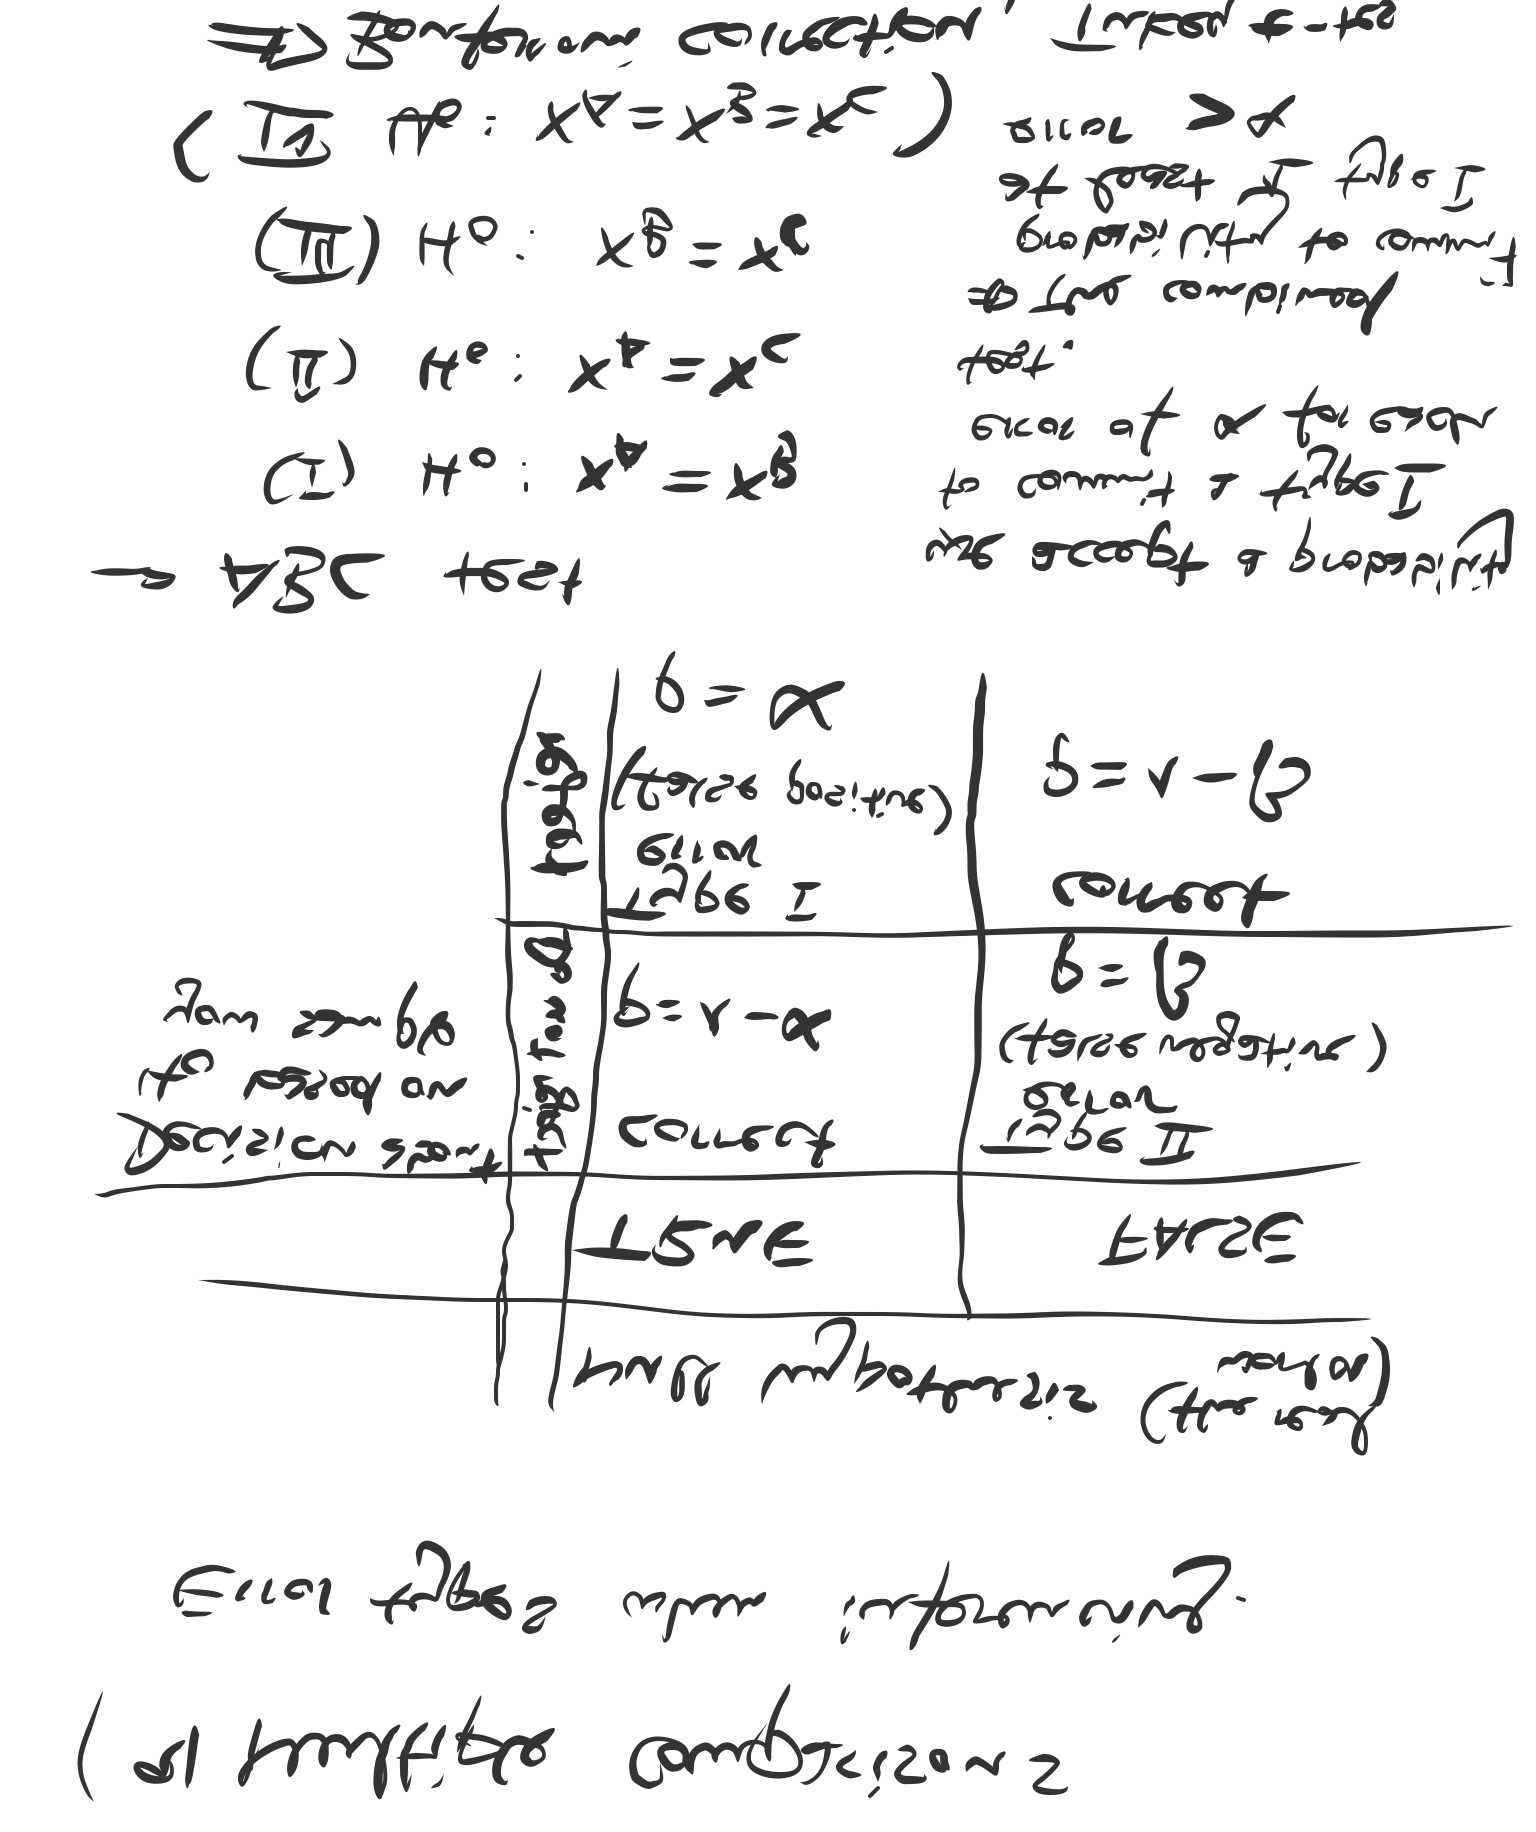 ( 9) Multiple Comparisons
Error types when inferencing.
Null hypothesis (the real
world)
TRUE FALSE
Decision about
H0 based on
your sample
Do not reject
correct
p = 1 - α
Type II
error
(false negative)
p = β
reject
Type I
error
(false positive)
p = α
correct
p = 1 - β
→ ABC test
(I) H0: xA = xB
(II) H0: xA = xC
(III) H0: xB = xC
(IV H0: xA = xB = xC)
we accept a probability
to commit a type I
error of α for each
test.
⇒ The combined
probability to commit
at least 1 type I
error > α
⇒ Bonferroni correction, Tukey t-tes